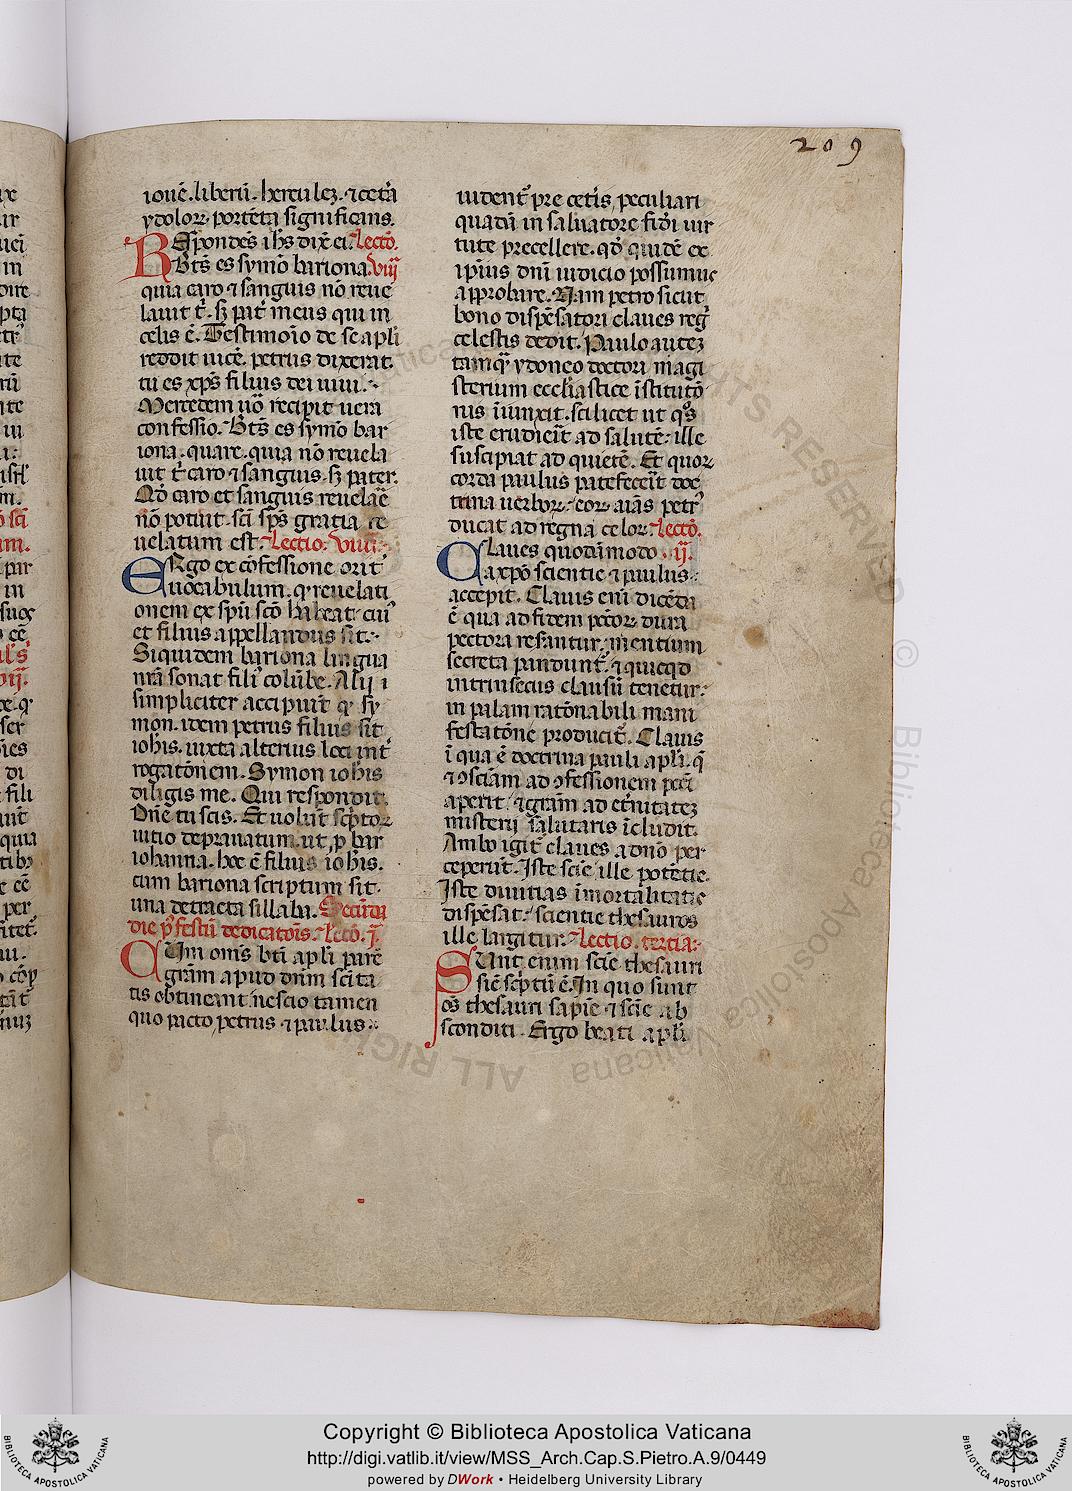 209
iouē. liberū. herculeȝ. ⁊ ceta᷒
ydoloꝝ. portēta significans.
REspondēs ih̄s dix̄ ei. Lectō.
Bt̄s es symō bariona. viij
quia caro ⁊ sanguis nō reue
lauit t'. sꝫ pat' meus qui in
celis ē. Testimōio de se apl̄i
reddit uicē. petrus dixerat.
tu es xp̄s filius dei uiui.
Mercedem uō recipit uera
confessio. Bt̄s es symō bar
iona. quare. quia nō reuela
uit t' caro ⁊ sanguis. sꝫ pater.
Qō caro et sanguis reuelaē
nō potuit. sc̄i sp̄s gratia re
uelatum est. Lectio. viiij.
ERgo ex cōfessione orit'
uocabulum. ꝙ reuelati
onem ex sp̄u sc̄o habeat. cui'
et filius appellandus sit.
Siquidem bariona lingua
nr̄a sonat fili' colūbe. Alij
simpliciter accipiūt ꝙ sy
mon. idem petrus filius sit
ioh̄is. iuxta alterius loci int'
rogatōnem. Symon ioh̄is
diligis me. Qui respondit.
Dn̄e tu scis. Et uolūt sc̄ptoꝝ
uitio deprauatum. ut p bar
iohanna. hoc ē filius ioh̄is.
cum bariona scriptum sit.
una detracta sillaba. Secūda
die p' festū dedicatōis. Lectō. j.
CUm om̄s bt̄i apl̄i parē
grām apud dn̄m sc̄ita
tis obtineant. nescio tamen
quo pacto petrus ⁊ paulus
uident' pre cet'is peculiari
quadā in saluatore fidi uir
tute precellere. qō quidē ex
ipius dn̄i iudicio possumus
approbare. Nam petro sicut
bono dispēsatori claues reg'
celestis dedit. Paulo auteȝ
tamꝙ ydoneo doctori magi
sterium eccl̄iastice īstitutō
nis īiunxit. scilicet ut q°s
iste erudierit ad salutē. ille
suscipiat ad quietē. Et quoꝝ
corda paulus patefecit doc
trina uerboꝝ. eoꝝ aīas petr'
ducat ad regna celoꝝ. Lectō.
CLaues quodāmodo .ij.
a xp̄o scientie ⁊ paulus
accepit. Clauis eni dicēda
ē qua ad fidem pectoꝝ dura
pectora reserantur. mentium
secreta pandunt'. ⁊ quicqd
intrinsecus clausū tenetur.
in palam ratōnabili mani
festatōne producit'. Clauis
ī qua ē doctrina pauli apl̄i. q̄
⁊ ꝯsciām ad ꝯfessionem pcc̄i
aperit. ⁊ grām ad et'nitateȝ
misterij salutaris īcludit.
Ambo igit' claues a dn̄o per
ceperūt. Iste scīe ille potētie.
Iste diuitias īmortalitatis
dispēsat. scientie thesauros
ille largitur. Lectio. tercia.
SUnt enim scīe thesauri
sic̄ sc̄ptū ē. In quo sunt
oēs thesauri sapīe ⁊ scīe ab
sconditi. Ergo beati apl̄i
© Biblioteca Apostolica Vaticana
ALL RIGHTS RESERVED
Copyright © Biblioteca Apostolica Vaticana
http://digi.vatlib.it/view/MSS_Arch.Cap.S.Pietro.A.9/0449
powered by DWork • Heidelberg University Library
BIBLIOTECA APOSTOLICA VATICANA
BIBLIOTECA APOSTOLICA VATICANA